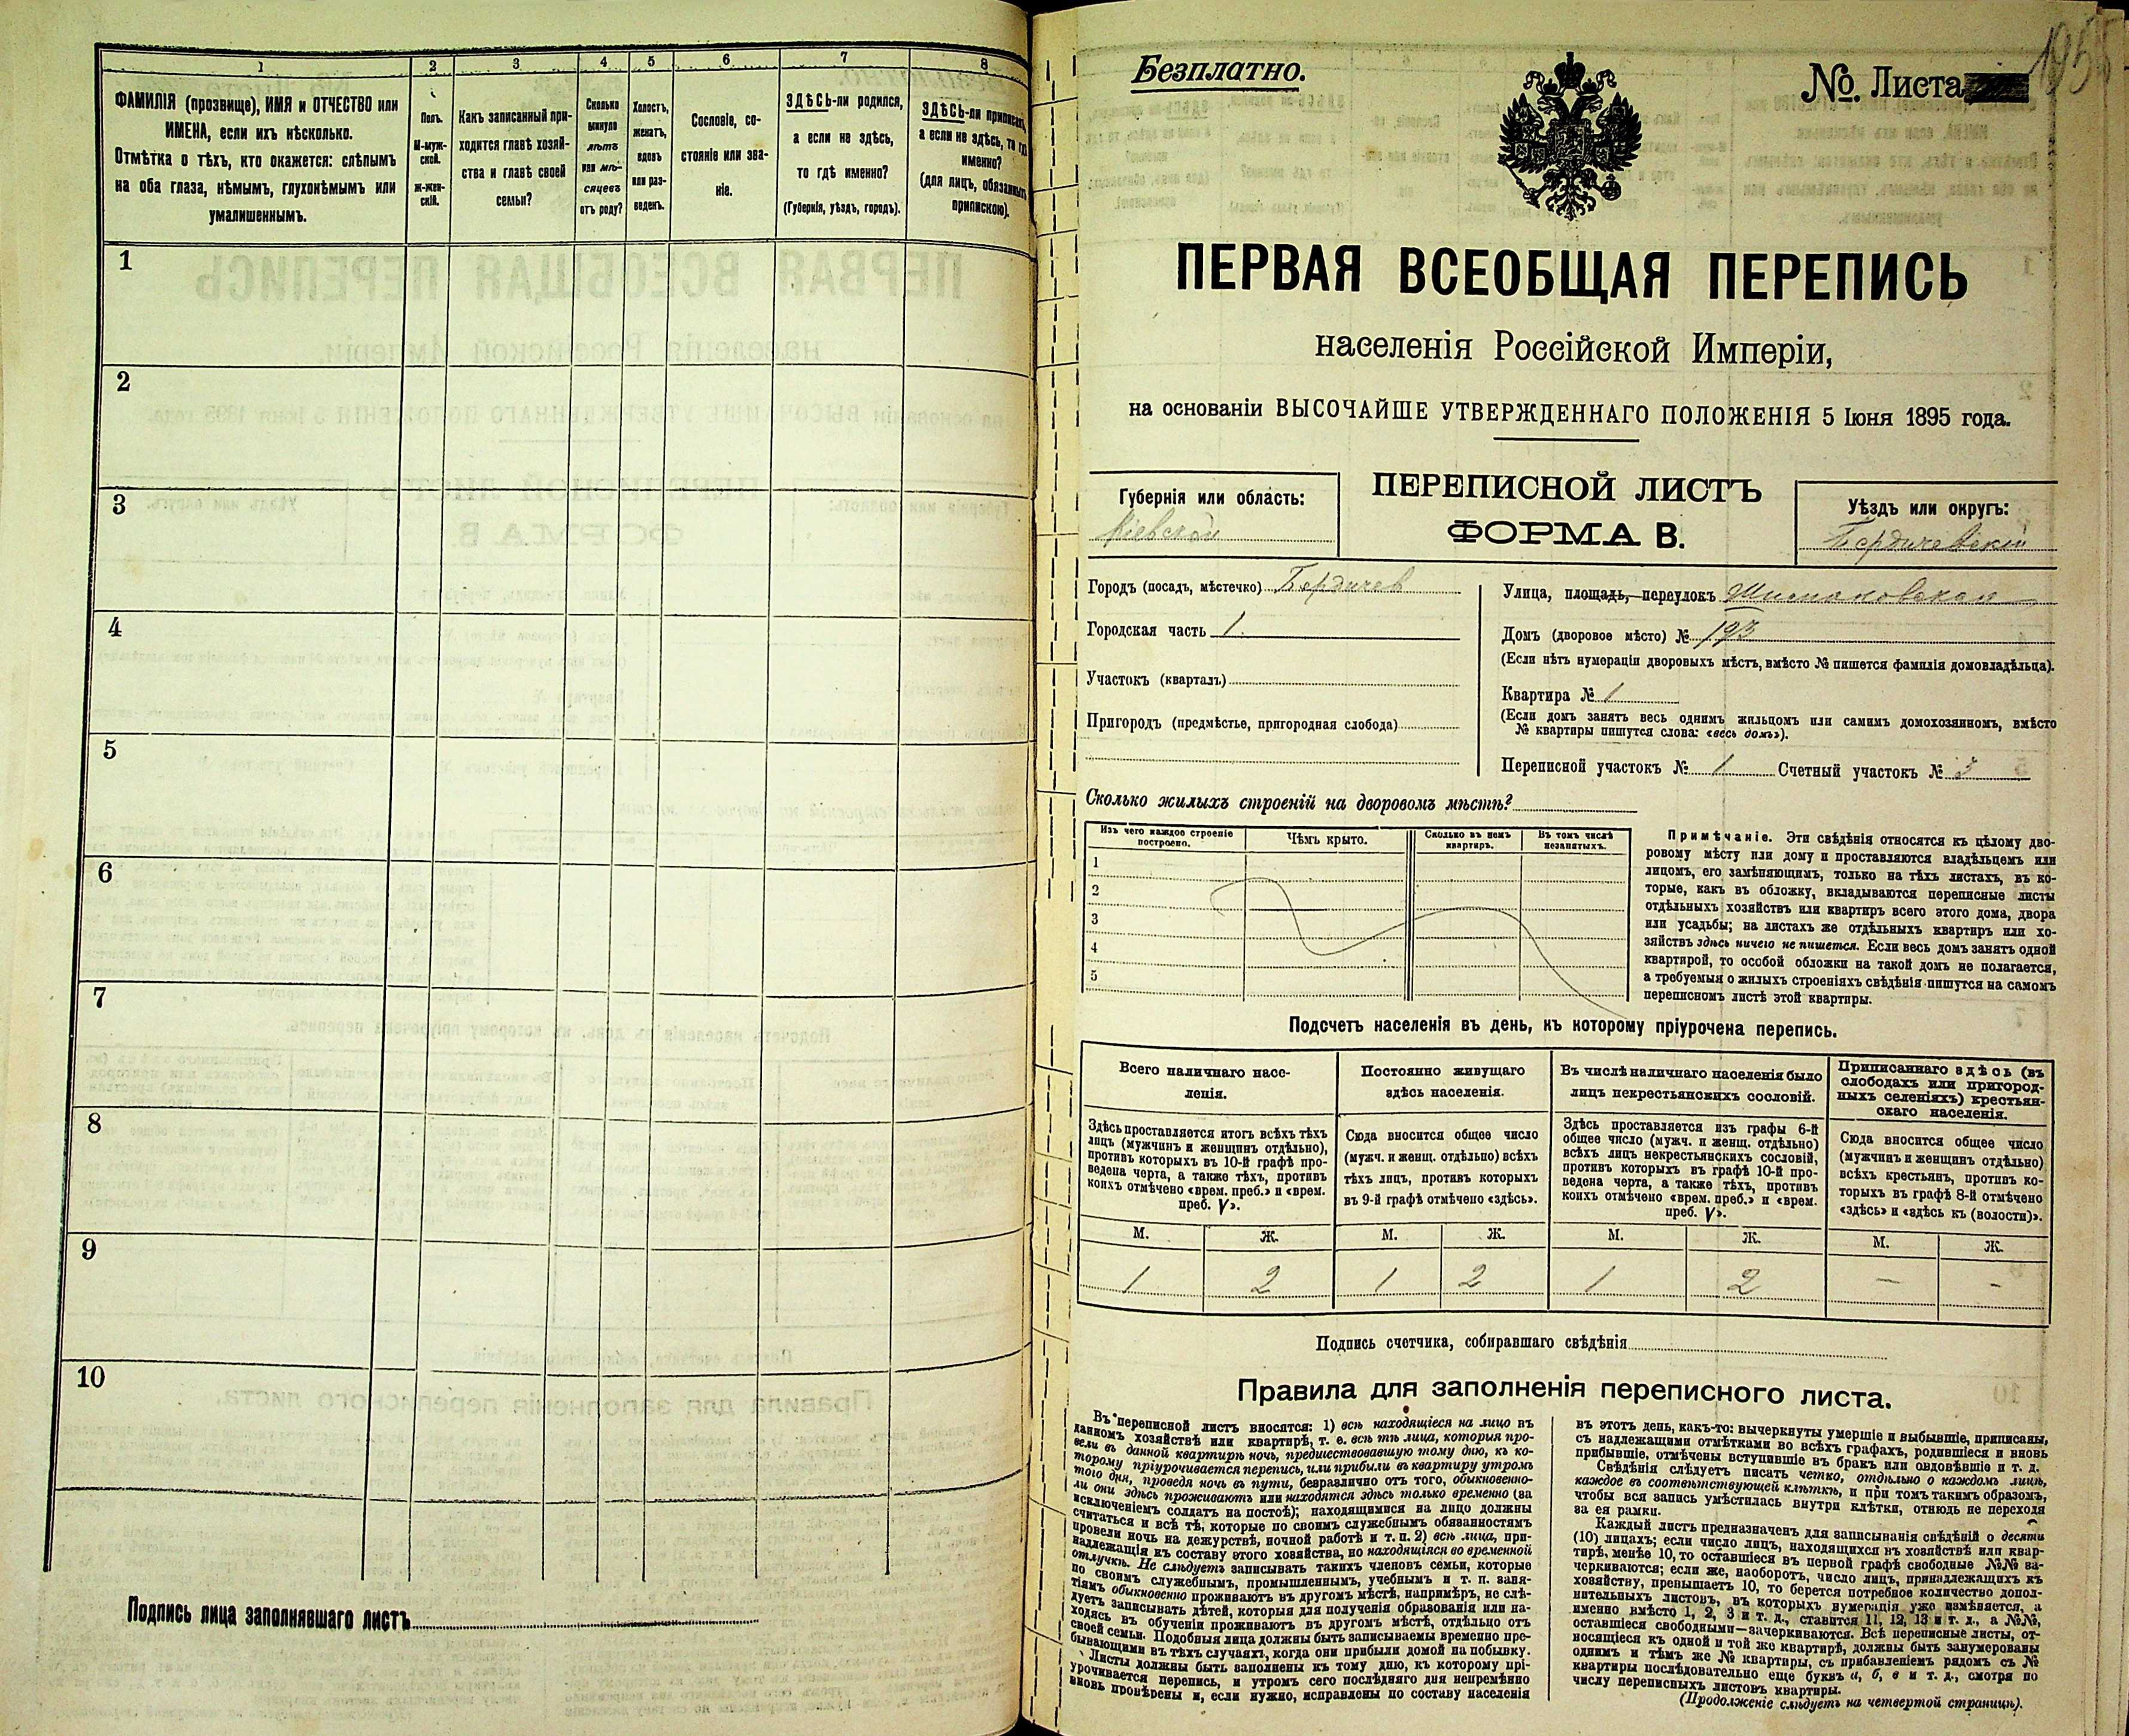 1 2 3 4 5 6 7 8
ФАМИЛІЯ (прозвище), ИМЯ и ОТЧЕСТВО или
ИМЕНА, если ихъ нѣсколько.
Отмѣтка о тѣхъ, кто окажется: слѣпымъ
на оба глаза, нѣмымъ, глухонѣмымъ или
умалишеннымъ.
Полъ.
М-муж-
ской.
Ж-жен-
скій.
Какъ записанный при-
ходится главѣ хозяй-
ства и главѣ своей
семьи?
Сколько
минуло
лѣтъ
или мѣ-
сяцевъ
отъ роду?
Холостъ,
женатъ,
вдовъ
или раз-
веденъ.
Сословіе, со-
стояніе или зва-
ніе.
ЗДѢСЬ-ли родился,
а если не здѣсь,
то гдѣ именно?
(Губернія, уѣздъ, городъ).
ЗДѢСЬ-ли приписанъ,
а если не здѣсь, то гдѣ
именно?
(для лицъ, обязанныхъ
припискою).
1
2
3
4
5
6
7
8
9
10
Подпись лица заполнявшаго листъ
Безплатно.
№. Листа
195
ПЕРВАЯ ВСЕОБЩАЯ ПЕРЕПИСЬ
населенія Россійской Имперіи,
на основаніи ВЫСОЧАЙШЕ УТВЕРЖДЕННАГО ПОЛОЖЕНІЯ 5 Іюня 1895 года.
Губернія или область:
Кіевской
ПЕРЕПИСНОЙ ЛИСТЪ
ФОРМА В.
Уѣздъ или округъ:
Бердичевскій
Городъ (посадъ, мѣстечко) Бердичев
Городская часть 1.
Участокъ (кварталъ)
Пригородъ (предмѣстье, пригородная слобода)
Улица, площадь, переулокъ
Домъ (дворовое мѣсто) № 193
(Если нѣтъ нумераціи дворовыхъ мѣстъ, вмѣсто № пишется фамилія домовладѣльца).
Квартира № 1
(Если домъ занятъ весь однимъ жильцомъ или самимъ домохозяиномъ, вмѣсто
№ квартиры пишутся слова: «весь домъ»).
Переписной участокъ № 1 Счетный участокъ № 3
Сколько жилыхъ строеній на дворовомъ мѣстѣ?
Изъ чего каждое строеніе
построено.
Чѣмъ крыто.
Сколько въ немъ
квартиръ.
Въ томъ числѣ
незанятыхъ.
1
2
3
4
5
Примѣчаніе. Эти свѣдѣнія относятся къ цѣлому дво-
ровому мѣсту или дому и проставляются владѣльцемъ или
лицомъ, его замѣняющимъ, только на тѣхъ листахъ, въ ко-
торые, какъ въ обложку, вкладываются переписные листы
отдѣльныхъ хозяйствъ или квартиръ всего этого дома, двора
или усадьбы; на листахъ же отдѣльныхъ квартиръ или хо-
зяйствъ здѣсь ничего не пишется. Если весь домъ занятъ одной
квартирой, то особой обложки на такой домъ не полагается,
а требуемыя о жилыхъ строеніяхъ свѣдѣнія пишутся на самомъ
переписномъ листѣ этой квартиры.
Подсчетъ населенія въ день, къ которому пріурочена перепись.
Всего наличнаго насе-
ленія.
Здѣсь проставляется итогъ всѣхъ тѣхъ
лицъ (мужчинъ и женщинъ отдѣльно),
противъ которыхъ въ 10-й графѣ про-
ведена черта, а также тѣхъ, противъ
коихъ отмѣчено «врем. преб.» и «врем.
преб. V».
Постоянно живущаго
здѣсь населенія.
Сюда вносится общее число
(мужч. и женщ. отдѣльно) всѣхъ
тѣхъ лицъ, противъ которыхъ
въ 9-й графѣ отмѣчено «здѣсь».
Въ числѣ наличнаго населенія было
лицъ некрестьянскихъ сословій.
Здѣсь проставляется изъ графы 6-й
общее число (мужч. и женщ. отдѣльно)
всѣхъ лицъ некрестьянскихъ сословій,
противъ которыхъ въ графѣ 10-й про-
ведена черта, а также тѣхъ, противъ
коихъ отмѣчено «врем. преб.» и «врем.
преб. V».
Приписаннаго здѣсь (въ
слободахъ или пригород-
ныхъ селеніяхъ) крестьян-
скаго населенія.
Сюда вносится общее число
(мужчинъ и женщинъ отдѣльно)
всѣхъ крестьянъ, противъ ко-
торыхъ въ графѣ 8-й отмѣчено
«здѣсь» и «здѣсь къ (волости)».
М. Ж. М. Ж. М. Ж. М. Ж.
1 2 1 2 1 2 — -
Подпись счетчика, собиравшаго свѣдѣнія
Правила для заполненія переписного листа.
Въ переписной листъ вносятся: 1) всѣ находящіеся на лицо въ
данномъ хозяйствѣ или квартирѣ, т. е. всѣ тѣ лица, которыя про-
вели въ данной квартирѣ ночь, предшествовавшую тому дню, къ ко-
торому пріурочивается перепись, или прибыли въ квартиру утромъ
того дня, проведя ночь въ пути, безразлично отъ того, обыкновенно-
ли они здѣсь проживаютъ или находятся здѣсь только временно (за
исключеніемъ солдатъ на постоѣ); находящимися на лицо должны
считаться и всѣ тѣ, которые по своимъ служебнымъ обязанностямъ
провели ночь на дежурствѣ, ночной работѣ и т. п. 2) всѣ лица, при-
надлежащія къ составу этого хозяйства, но находящіяся во временной
отлучкѣ. Не слѣдуетъ записывать такихъ членовъ семьи, которые
по своимъ служебнымъ, промышленнымъ, учебнымъ и т. п. заня-
тіямъ обыкновенно проживаютъ въ другомъ мѣстѣ, напримѣръ, не слѣ-
дуетъ записывать дѣтей, которыя для полученія образованія или на-
ходясь въ обученіи проживаютъ въ другомъ мѣстѣ, отдѣльно отъ
своей семьи. Подобныя лица должны быть записываемы временно пре-
бывающими въ тѣхъ случаяхъ, когда они прибыли домой на побывку.
Листы должны быть заполнены къ тому дню, къ которому прі-
урочивается перепись, и утромъ сего послѣдняго дня непремѣнно
вновь провѣрены и, если нужно, исправлены по составу населенія
въ этотъ день, какъ-то: вычеркнуты умершіе и выбывшіе, приписаны,
съ надлежащими отмѣтками во всѣхъ графахъ, родившіеся и вновь
прибывшіе, отмѣчены вступившіе въ бракъ или овдовѣвшіе и т. д.
Свѣдѣнія слѣдуетъ писать четко, отдѣльно о каждомъ лицѣ,
каждое въ соотвѣтствующей клѣткѣ, и при томъ такимъ образомъ,
чтобы вся запись умѣстилась внутри клѣтки, отнюдь не переходя
за ея рамки.
Каждый листъ предназначенъ для записыванія свѣдѣній о десяти
(10) лицахъ; если число лицъ, находящихся въ хозяйствѣ или квар-
тирѣ, менѣе 10, то оставшіеся въ первой графѣ свободные №№ за-
черкиваются; если же, наоборотъ, число лицъ, принадлежащихъ къ
хозяйству, превышаетъ 10, то берется потребное количество допол-
нительныхъ листовъ, въ которыхъ нумерація уже измѣняется, а
именно вмѣсто 1, 2, 3 и т. д., ставится 11, 12, 13 и т. д., а №№,
оставшіеся свободными—зачеркиваются. Всѣ переписные листы, от-
носящіеся къ одной и той же квартирѣ, должны быть занумерованы
однимъ и тѣмъ же № квартиры, съ прибавленіемъ рядомъ съ №
квартиры послѣдовательно еще буквъ а, б, в и т. д., смотря по
числу переписныхъ листовъ квартиры.
(Продолженіе слѣдуетъ на четвертой страницѣ).